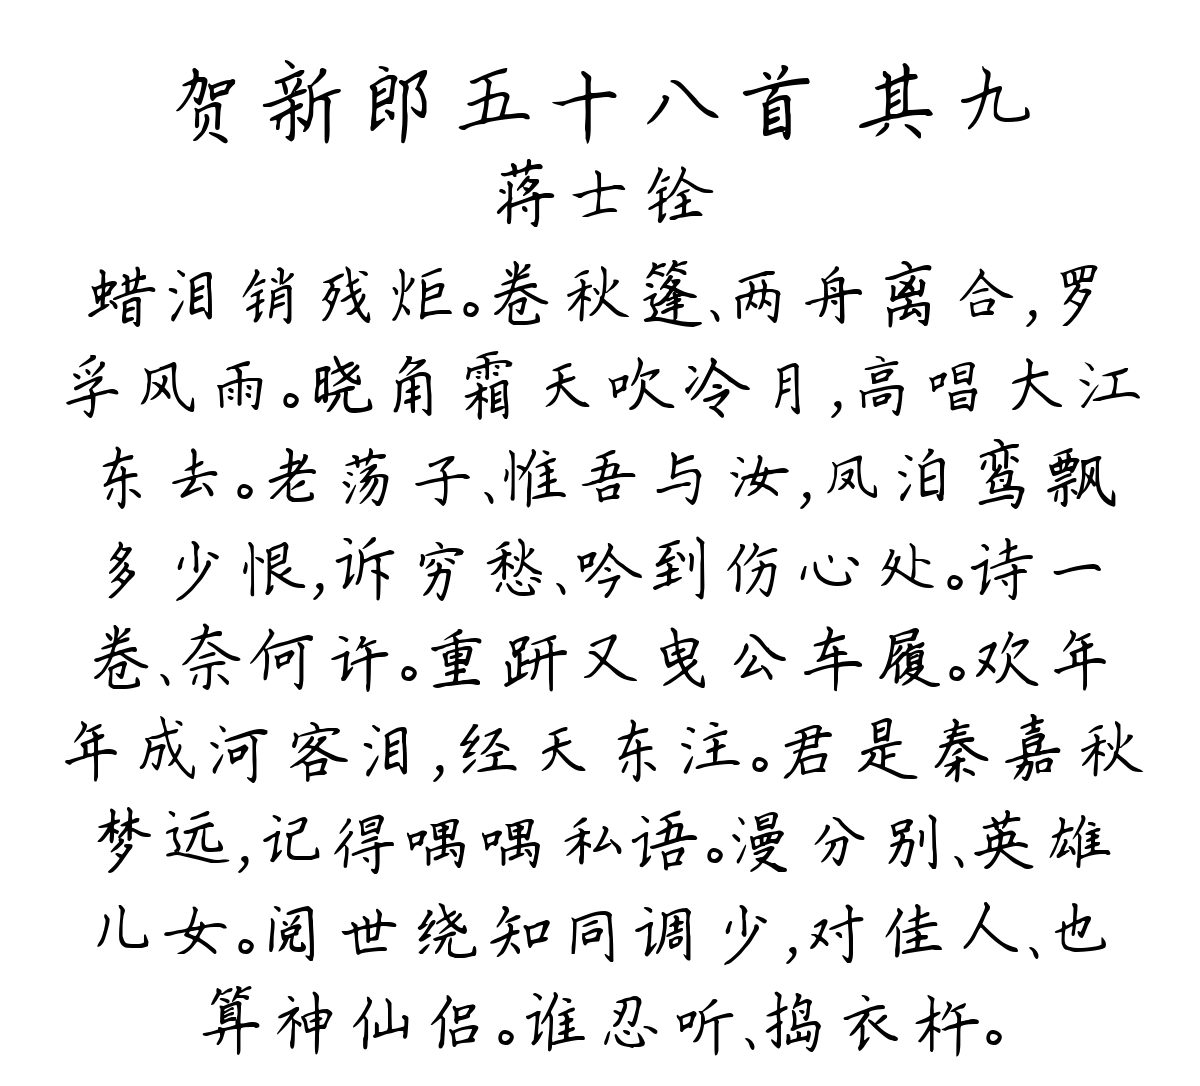 贺新郎五十八首 其九
蒋士铨
蜡泪销残炬。卷秋篷、两舟离合,罗
孚风雨。晓角霜天吹冷月,高唱大江
东去。老荡子、惟吾与汝,凤泊鸾飘
多少恨,诉穷愁、吟到伤心处。诗一
卷、奈何许。重趼又曳公车履。欢年
年成河客泪,经天东注。君是秦嘉秋
梦远,记得喁喁私语。漫分别、英雄
儿女。阅世绕知同调少,对佳人、也
算神仙侣。谁忍听、捣衣杵。